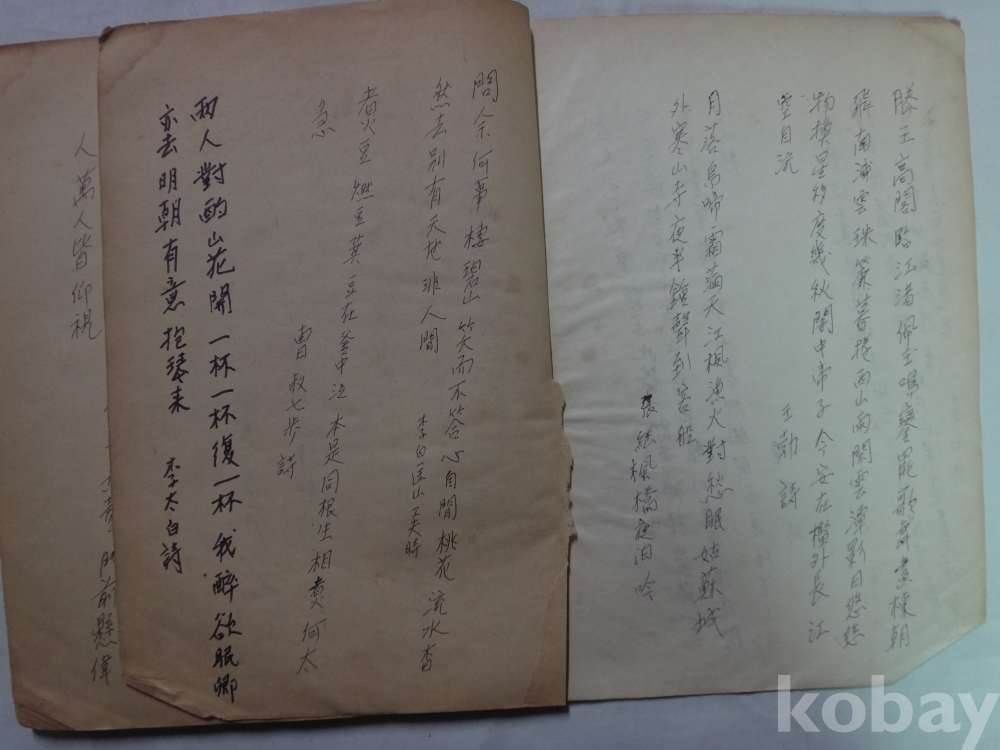 滕王高閣臨江渚佩玉鳴鑾罷歌舞畫棟朝
飛南浦雲珠簾暮捲西山雨閑雲潭影日悠悠
物換星移度幾秋閣中帝子今安在檻外長江
空自流 王勃詩
月落烏啼霜滿天江楓漁火對愁眠姑蘇城
外寒山寺夜半鐘聲到客船
張継楓橋夜泊吟
問余何事棲碧山笑而不答心自閒桃花流水杳
然去別有天地非人間 李白 山 時
煮豆燃豆萁豆在釜中泣本是同根生相煮何太
急 曹叔七步詩
兩人對酌山花開一杯一杯復一杯我醉欲眠卿
亦去明朝有意抱琴来 李太白詩
前懸偉
人萬人皆仰視
kobay